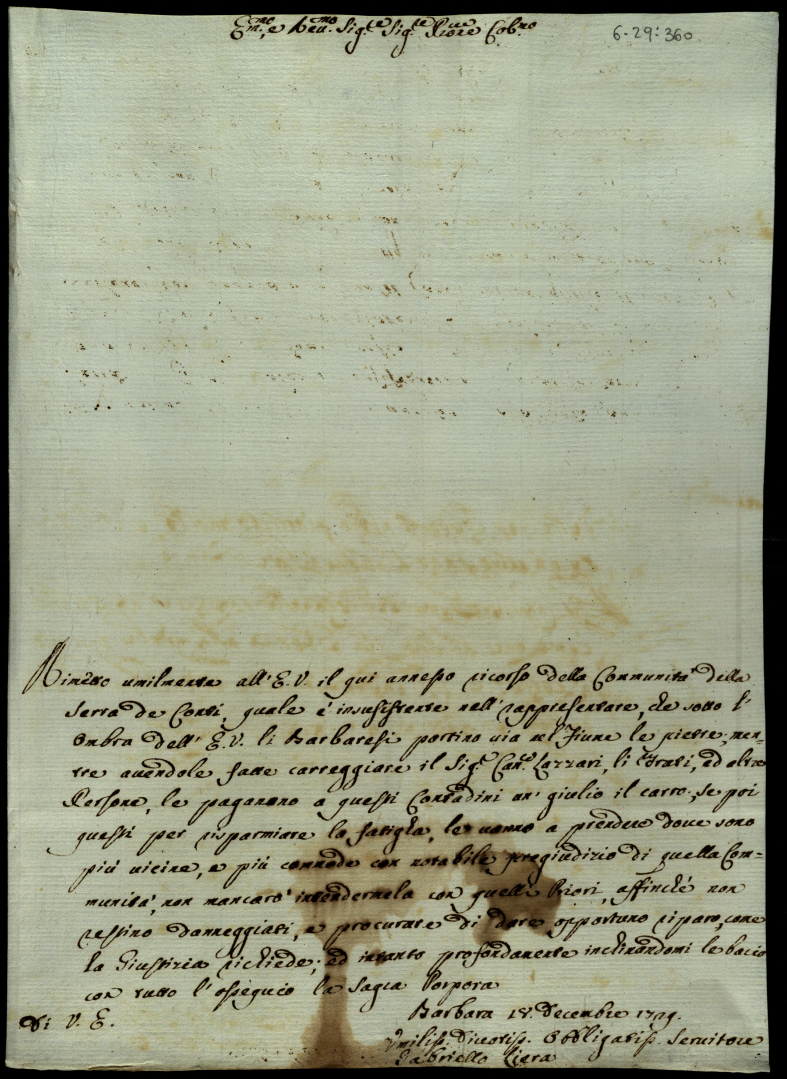 Em.mo, e Rev.mo Sig.re Sig.re P̄ne Colmo
6-29:360
Rimetto umilmente all' E.V. il qui annesso ricorso della Communità della
Serra de Conti, quale è insussistente nell' rappresentare, che sotto l'
ombra dell' E.V. li Barbaresi portino via nel Fiume le pietre; men-
tre avendole fatte carreggiare il Sig.r Can.co Lazzari, li Frati, ed altre
Persone, le paganano a questi Contadini un' giulio il carro; se poi
questi per risparmiare la fatigha, le vanno a prendere dove sono
più vicine, e più commode con notabile pregiudizio di quella Com-
munità, non mancarò intendermela con quelli Priori, affinché non
restino danneggiati, e procurare di dare opportuno riparo, come
la Giustizia richiede; ed intanto profondamente inchinandomi le bacio
con tutto l' ossequio la Sagra Porpora
Di V. E.
Barbara decembre
Umiliss. Divotiss. Obbligatiss. Servitore
Gabriello